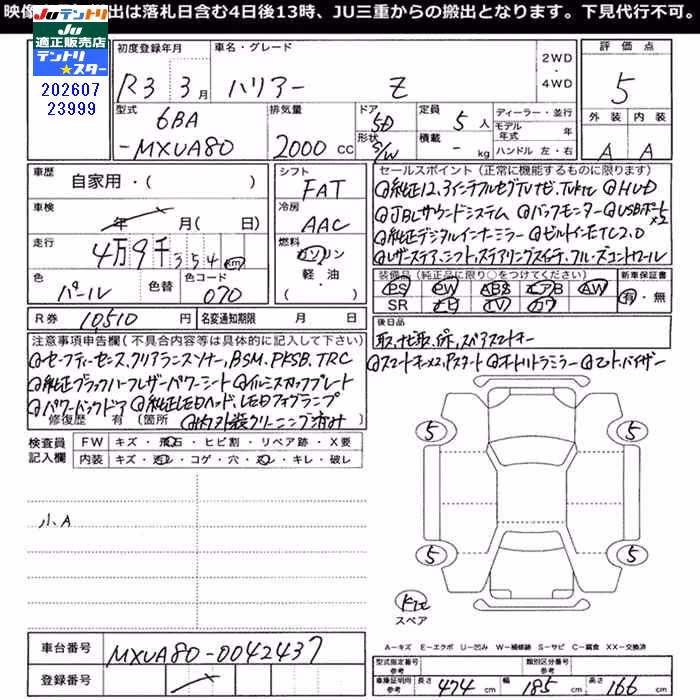 映像 出は落札日含む4日後13時、JU三重からの搬出となります。下見代行不可。
Juテントリ
JU
適正販売店
テントリ
★スター
202607
23999
初度登録年月 車名・グレード 2WD ・ 4WD 評価点
R3 3月 ハリアー Z 5
型式 排気量 ドア 定員 ディーラー・並行 外装 内装
6BA 2000 CC 5D 5人 モデル年式 年 A A
-MXUA80 形状 S/W 積載 - kg ハンドル 左・右
車歴 シフト セールスポイント(正常に機能するものに限ります)
自家用・( ) FAT ◎純正12.3インチフルセグTVナビ、TVkit ◎HUD
車検 年 月( 日) 冷房 AAC ◎JBLサウンドシステム ◎バックモニター ◎USBポート×2
走行 4万9千354km 燃料 ガソリン 軽・油 ( ) ◎純正デジタルインナーミラー ◎ビルトインETC2.0
◎レザーステア、シフト、ステアリングスイッチ、クルーズコントロール
色 色替 色コード 装備品(純正品に限り○をつけてください) 新車保証書
パール 070 PS PW ABS エアB AW 有・無
SR ナビ TV カワ
R券 10510円 名変通知期限 月 日 後日品
注意事項申告欄(不具合内容等は具体的に記入して下さい) 取、ナビ取、保、スペアスマートキー
◎セーフティーセンス、クリアランスソナー、BSM、PKSB、TRC ◎スマートキー×2、Pスタート ◎オートリトラミラー ◎ドアバイザー
◎純正ブラックハーフレザーパワーシート ◎イルミスカッフプレート
◎パワーバックドア ◎純正LEDヘッド、LEDフォグランプ
修復歴 有(箇所 ◎内外装クリーニング済み
検査員記入欄 FW キズ・飛石・ヒビ割・リペア跡・X要
内装 キズ・汚レ・コゲ・穴・スレ・キレ・破レ
小A
5 5
5 5
スペア
A-キズ E-エクボ U-凹み W-補修跡 S-サビ C-腐食 XX-交換済
車台番号 MXUA80-0042437 型式指定番号 参考 類別区分番号 参考
登録番号 車庫証明用 参考 長さ 474 cm 幅 185 cm 高さ 166 cm